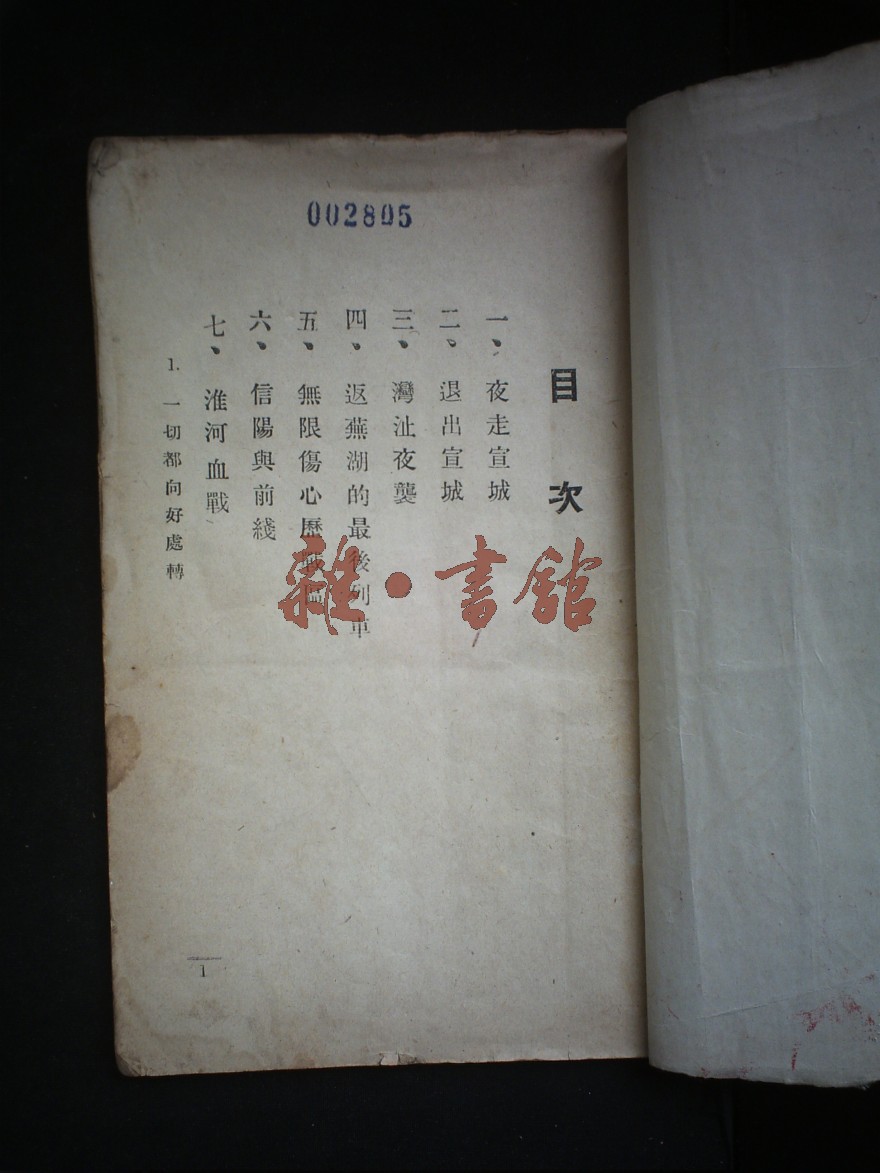 002805
目次
一、夜走宣城
二、退出宣城
三、灣沚夜襲
四、返蕪湖的最後列車
五、無限傷心歷戰區
六、信陽與前綫
七、淮河血戰
1. 一切都向好處轉
1
雜·書館